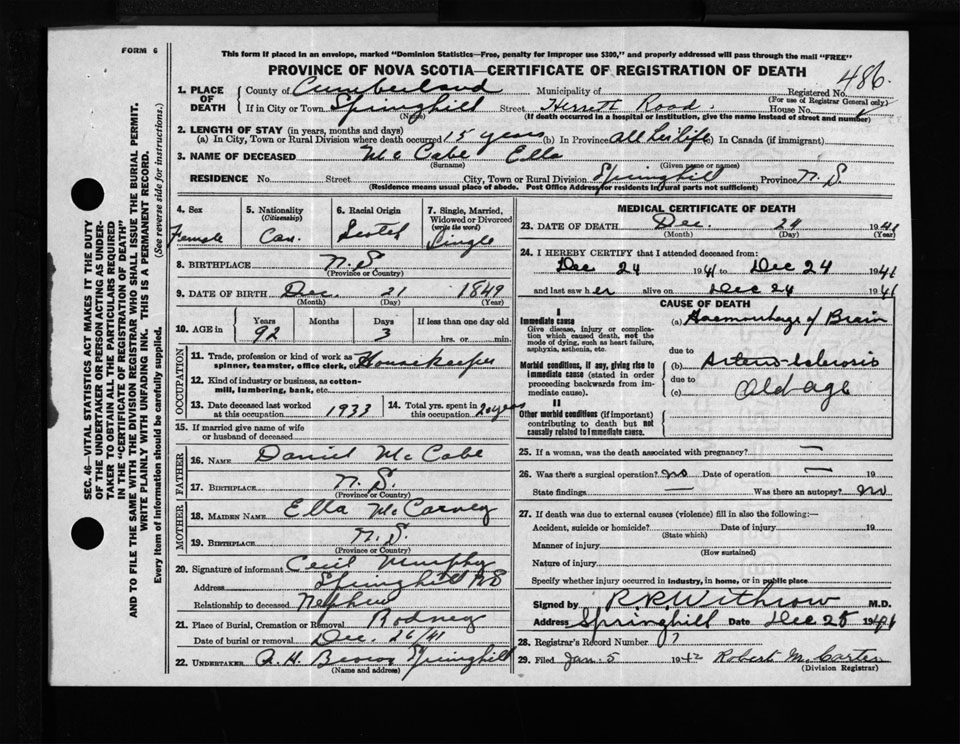 FORM 6
This form if placed in an envelope, marked "Dominion Statistics—Free, penalty for improper use $300," and properly addressed will pass through the mail "FREE"
PROVINCE OF NOVA SCOTIA—CERTIFICATE OF REGISTRATION OF DEATH
486
1. PLACE OF DEATH
County of Cumberland Municipality of Registered No.
(For use of Registrar General only)
If in City or Town Springhill Street Herrett Road House No.
(Name) (If death occurred in a hospital or institution, give the name instead of street and number)
2. LENGTH OF STAY (in years, months and days)
(a) In City, Town or Rural Division where death occurred 15 years (b) In Province All her life (c) In Canada (if immigrant)
3. NAME OF DECEASED McCabe Ella
(Surname) (Given name or names)
RESIDENCE No. Street City, Town or Rural Division Springhill Province N.S.
(Residence means usual place of abode. Post Office Address for residents in rural parts not sufficient)
4. Sex Female
5. Nationality (Citizenship) Can.
6. Racial Origin Scotch
7. Single, Married, Widowed or Divorced (write the word) Single
8. BIRTHPLACE N.S
(Province or Country)
9. DATE OF BIRTH Dec. 21 1849
(Month) (Day) (Year)
10. AGE in Years Months Days If less than one day old
92 3 hrs. or min.
OCCUPATION
11. Trade, profession or kind of work as spinner, teamster, office clerk, etc. Housekeeper
12. Kind of industry or business, as cotton-mill, lumbering, bank, etc.
13. Date deceased last worked at this occupation 1933
14. Total yrs. spent in this occupation 20 years
15. If married give name of wife or husband of deceased
FATHER
16. NAME Daniel McCabe
17. BIRTHPLACE N.S.
(Province or Country)
MOTHER
18. MAIDEN NAME Ella McCarvey
19. BIRTHPLACE N.S.
(Province or Country)
20. Signature of informant Cecil Murphy
Address Springhill NS
Relationship to deceased Nephew
21. Place of Burial, Cremation or Removal Rodney
Date of burial or removal Dec. 26/41
22. UNDERTAKER A. H. Brown Springhill
(Name and address)
MEDICAL CERTIFICATE OF DEATH
23. DATE OF DEATH Dec. 24 1941
(Month) (Day) (Year)
24. I HEREBY CERTIFY that I attended deceased from:
Dec 24 1941 to Dec 24 1941
and last saw her alive on Dec 24 1941
CAUSE OF DEATH
I
Immediate cause
Give disease, injury or complication which caused death, not the mode of dying, such as heart failure, asphyxia, asthenia, etc.
(a) Haemorrhage of Brain
due to
Morbid conditions, if any, giving rise to immediate cause (stated in order proceeding backwards from immediate cause).
(b) Arterio-sclerosis
due to
(c) Old age
II
Other morbid conditions (if important) contributing to death but not causally related to immediate cause.
25. If a woman, was the death associated with pregnancy? —
26. Was there a surgical operation? no Date of operation — 19
State findings — Was there an autopsy? no
27. If death was due to external causes (violence) fill in also the following:—
Accident, suicide or homicide? Date of injury 19
(State which)
Manner of injury
(How sustained)
Nature of injury
Specify whether injury occurred in industry, in home, or in public place
Signed by R.R. Withrow M.D.
Address Springhill Date Dec 25 1941
28. Registrar's Record Number 7
29. Filed Jan. 5 1942 Robert M. Carter
(Division Registrar)
SEC. 46—VITAL STATISTICS ACT MAKES IT THE DUTY
OF THE UNDERTAKER OR PERSON ACTING AS UNDER-
TAKER TO OBTAIN ALL THE PARTICULARS REQUIRED
IN THE "CERTIFICATE OF REGISTRATION OF DEATH"
AND TO FILE THE SAME WITH THE DIVISION REGISTRAR WHO SHALL ISSUE THE BURIAL PERMIT.
WRITE PLAINLY WITH UNFADING INK. THIS IS A PERMANENT RECORD.
Every item of information should be carefully supplied. (See reverse side for instructions.)